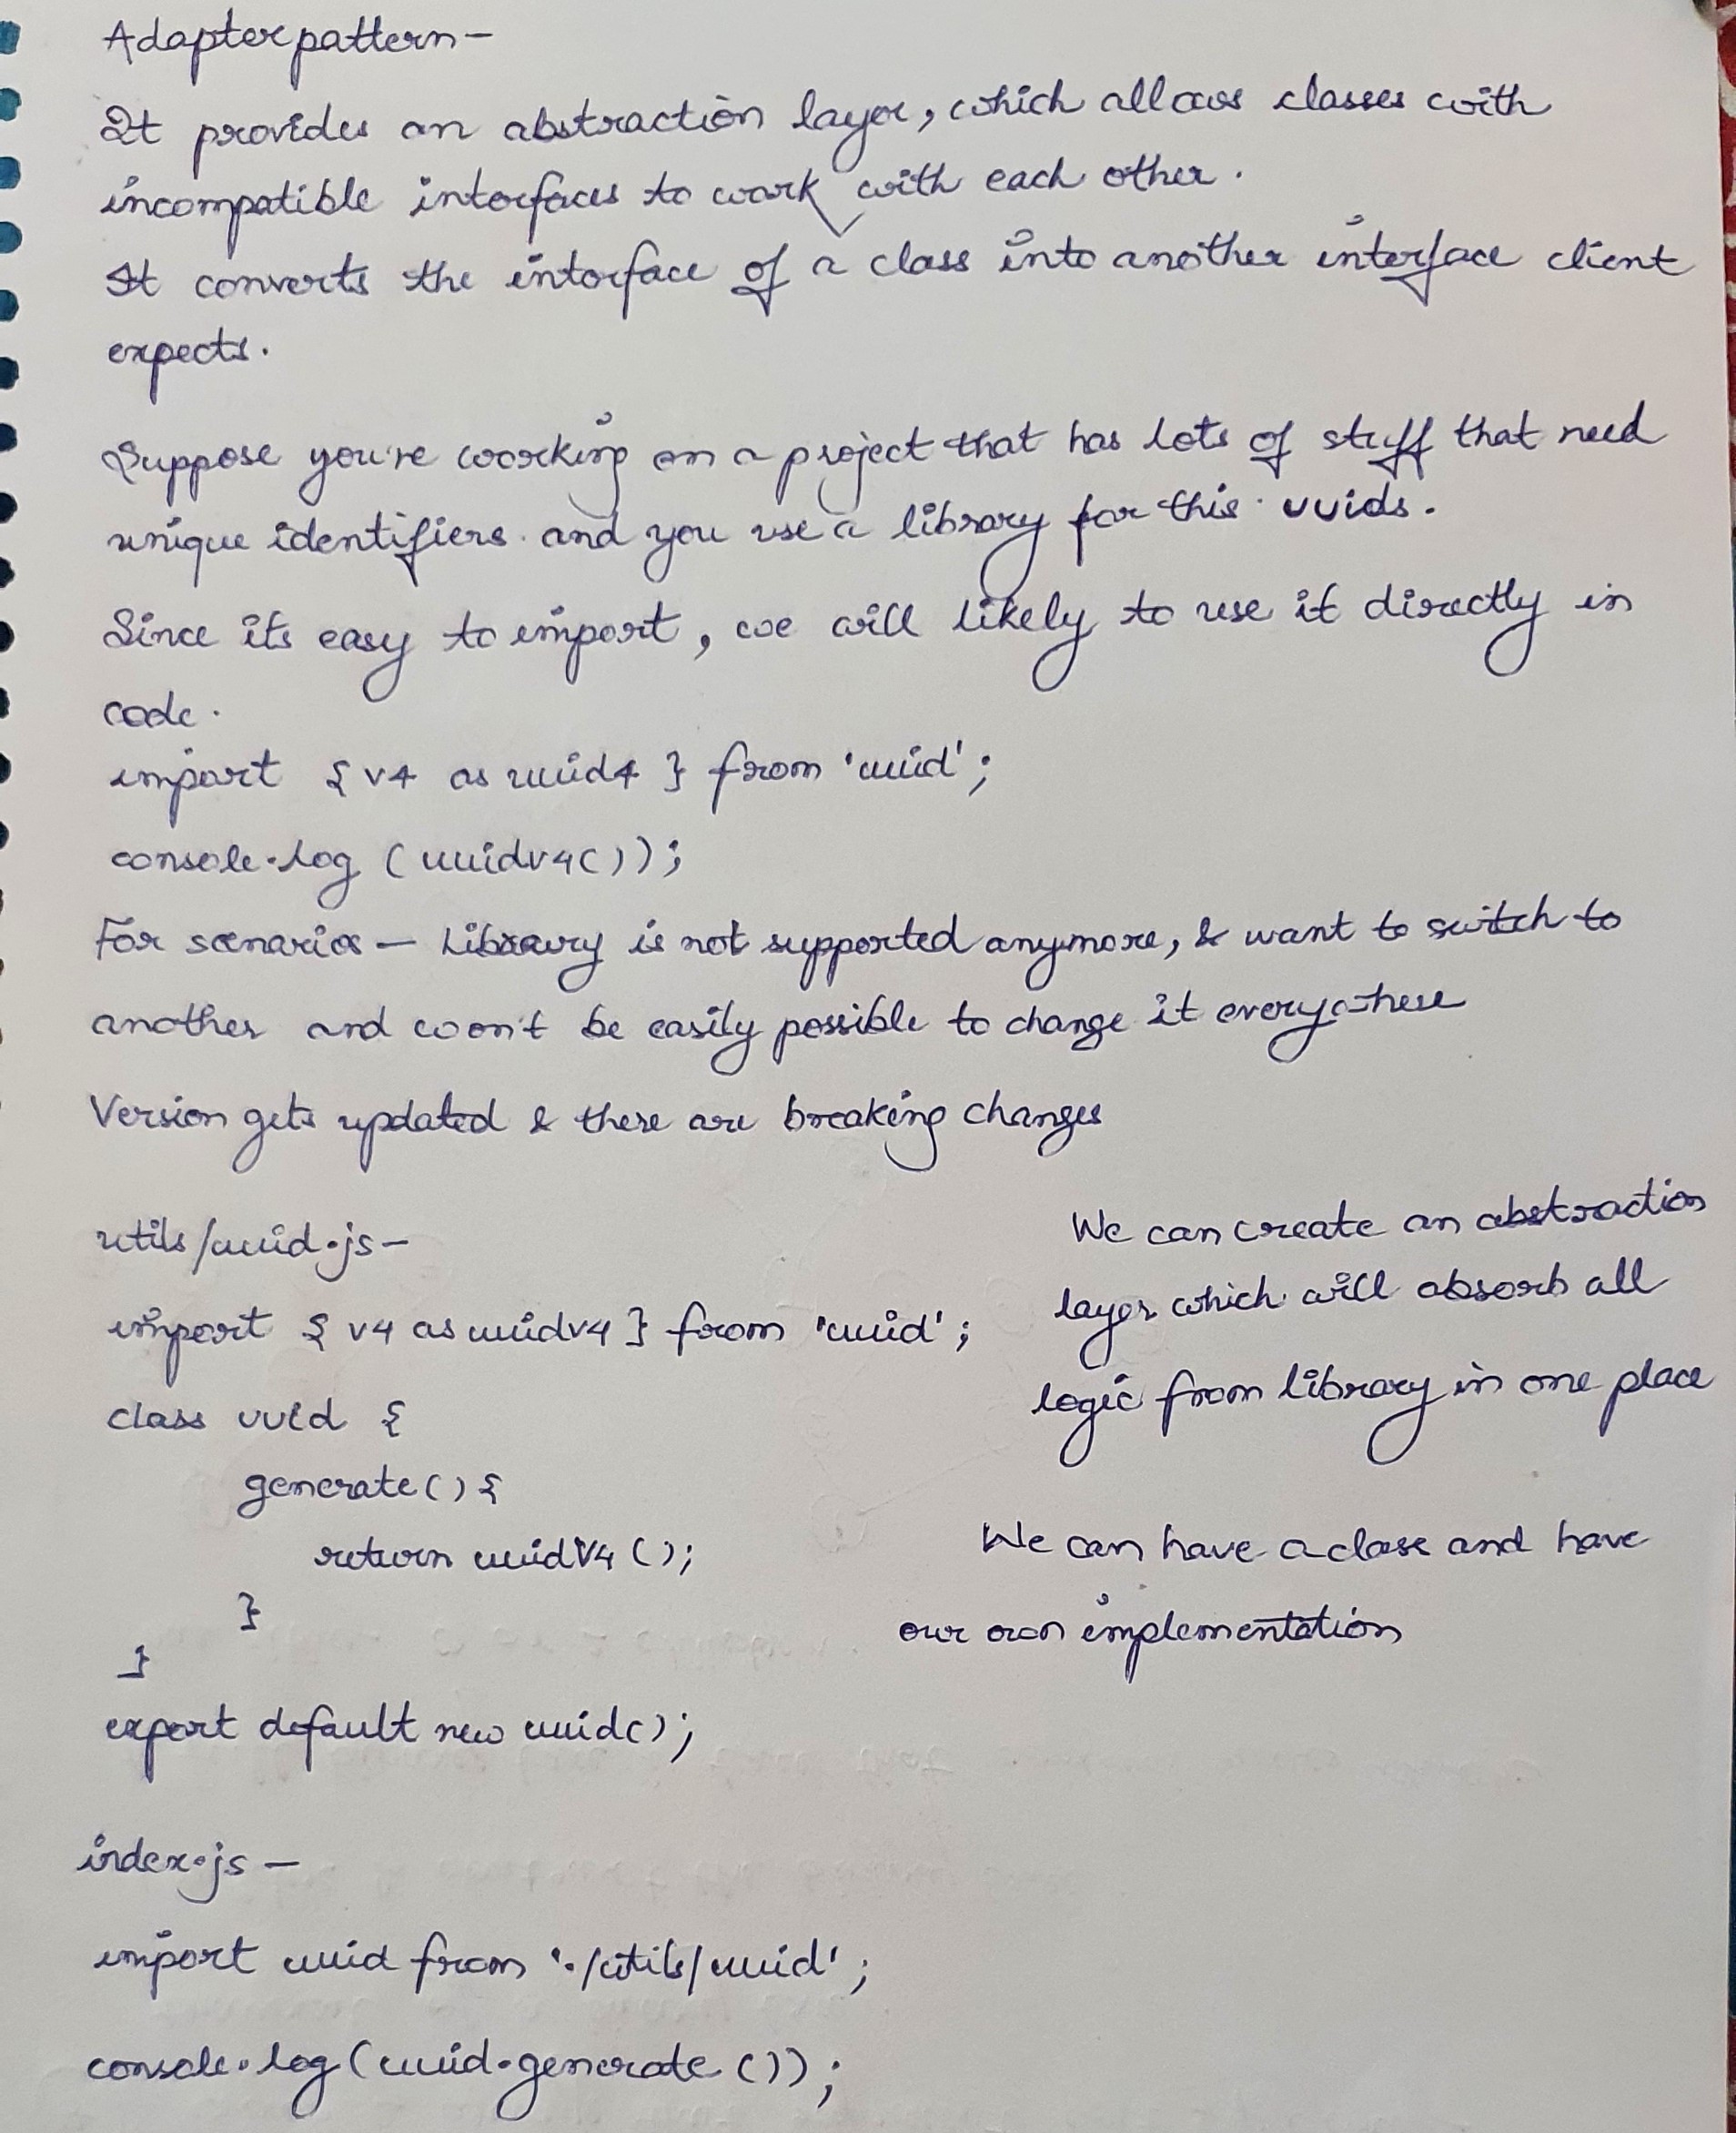 Adapter pattern-
It provides an abstraction layer, which allows classes with
incompatible interfaces to work with each other.
It converts the interface of a class into another interface client
expects.
Suppose you're working on a project that has lots of stuff that need
unique identifiers. and you use a library for this. uuids.
Since its easy to import, we will likely to use it directly in
code.
import { v4 as uuid4 } from 'uuid';
console.log (uuidv4());
For scenarios - Library is not supported anymore, & want to switch to
another and won't be easily possible to change it everywhere
Version gets updated & there are breaking changes
utils/uuid.js-
import { v4 as uuidv4 } from 'uuid';
class uuid {
generate() {
return uuidV4 ();
}
}
export default new uuid();
We can create an abstraction
layer which will absorb all
logic from library in one place
We can have a class and have
our own implementation
index.js -
import uuid from './utils/uuid';
console.log(uuid.generate ());